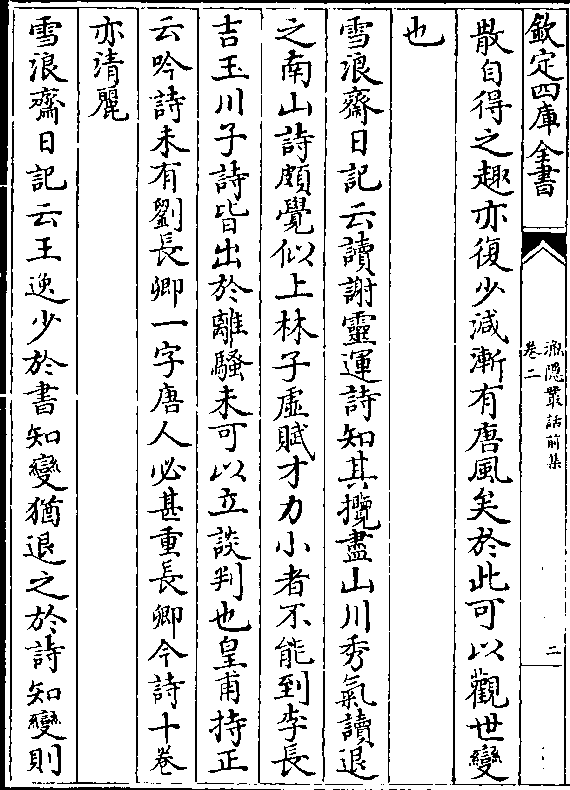 欽定四庫全書
漁隠叢話前集
卷二
二
散自得之趣亦復少減漸有唐風矣於此可以觀世變
也
雪浪齋日記云讀謝靈運詩知其攬盡山川秀氣讀退
之南山詩頗覺似上林子虛賦才力小者不能到李長
吉玉川子詩皆出於離騷未可以立談判也皇甫持正
云吟詩未有劉長卿一字唐人必甚重長卿今詩十卷
亦清麗
雪浪齋日記云王逸少於書知變猶退之於詩知變則